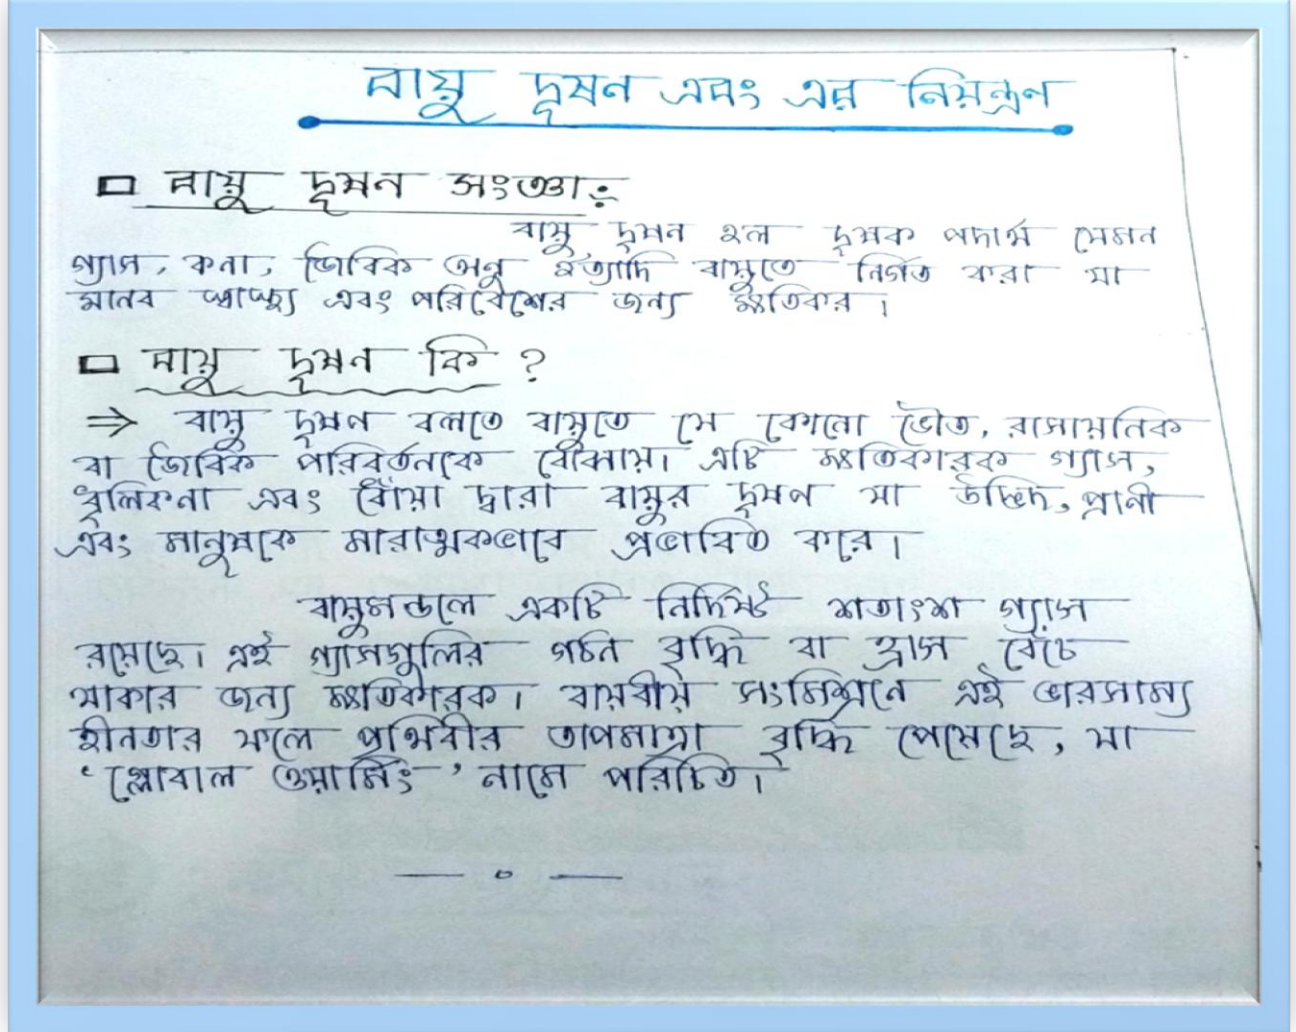 বায়ু দূষন এবং এর নিয়ন্ত্রন
বায়ু দূষন সংজ্ঞাঃ
বায়ু দূষন হল দূষক পদার্থ যেমন
গ্যাস, কনা, জৈবিক অনু ইত্যাদি বায়ুতে নির্গত করা যা
মানব স্বাস্থ্য এবং পরিবেশের জন্য ক্ষতিকর।
বায়ু দূষন কি ?
⇒ বায়ু দূষণ বলতে বায়ুতে যে কোনো ভৌত, রাসায়নিক
বা জৈবিক পরিবর্তনকে বোঝায়। এটি ক্ষতিকারক গ্যাস,
ধূলিকনা এবং ধোঁয়া দ্বারা বায়ুর দূষণ যা উদ্ভিদ, প্রানী
এবং মানুষকে মারাত্মকভাবে প্রভাবিত করে।
বায়ুমন্ডলে একটি নির্দিষ্ট শতাংশ গ্যাস
রয়েছে। এই গ্যাসগুলির গঠন বৃদ্ধি বা হ্রাস বেঁচে
থাকার জন্য ক্ষতিকারক। বায়বীয় সংমিশ্রনে এই ভারসাম্য
হীনতার ফলে পৃথিবীর তাপমাত্রা বৃদ্ধি পেয়েছে, যা
‘গ্লোবাল ওয়ার্মিং’ নামে পরিচিত।